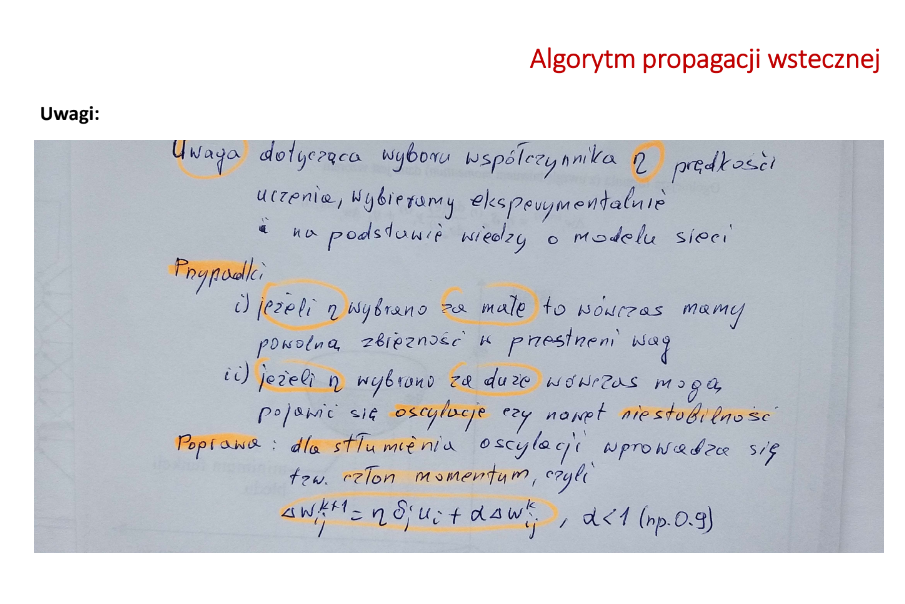 Algorytm propagacji wstecznej
Uwagi:
Uwaga dotycząca wyboru współczynnika η prędkości
uczenia, wybieramy eksperymentalnie
i na podstawie wiedzy o modelu sieci
Przypadki
i) jeżeli η wybrano za małe to wówczas mamy
powolną zbieżność w przestrzeni wag
ii) jeżeli η wybrano za duże wówczas mogą
pojawić się oscylacje czy nawet niestabilność
Poprawa: dla stłumienia oscylacji wprowadza się
tzw. człon momentum, czyli
Δw_ij^{k+1} = η δ_j u_i + α Δw_ij^k , α<1 (np. 0.9)